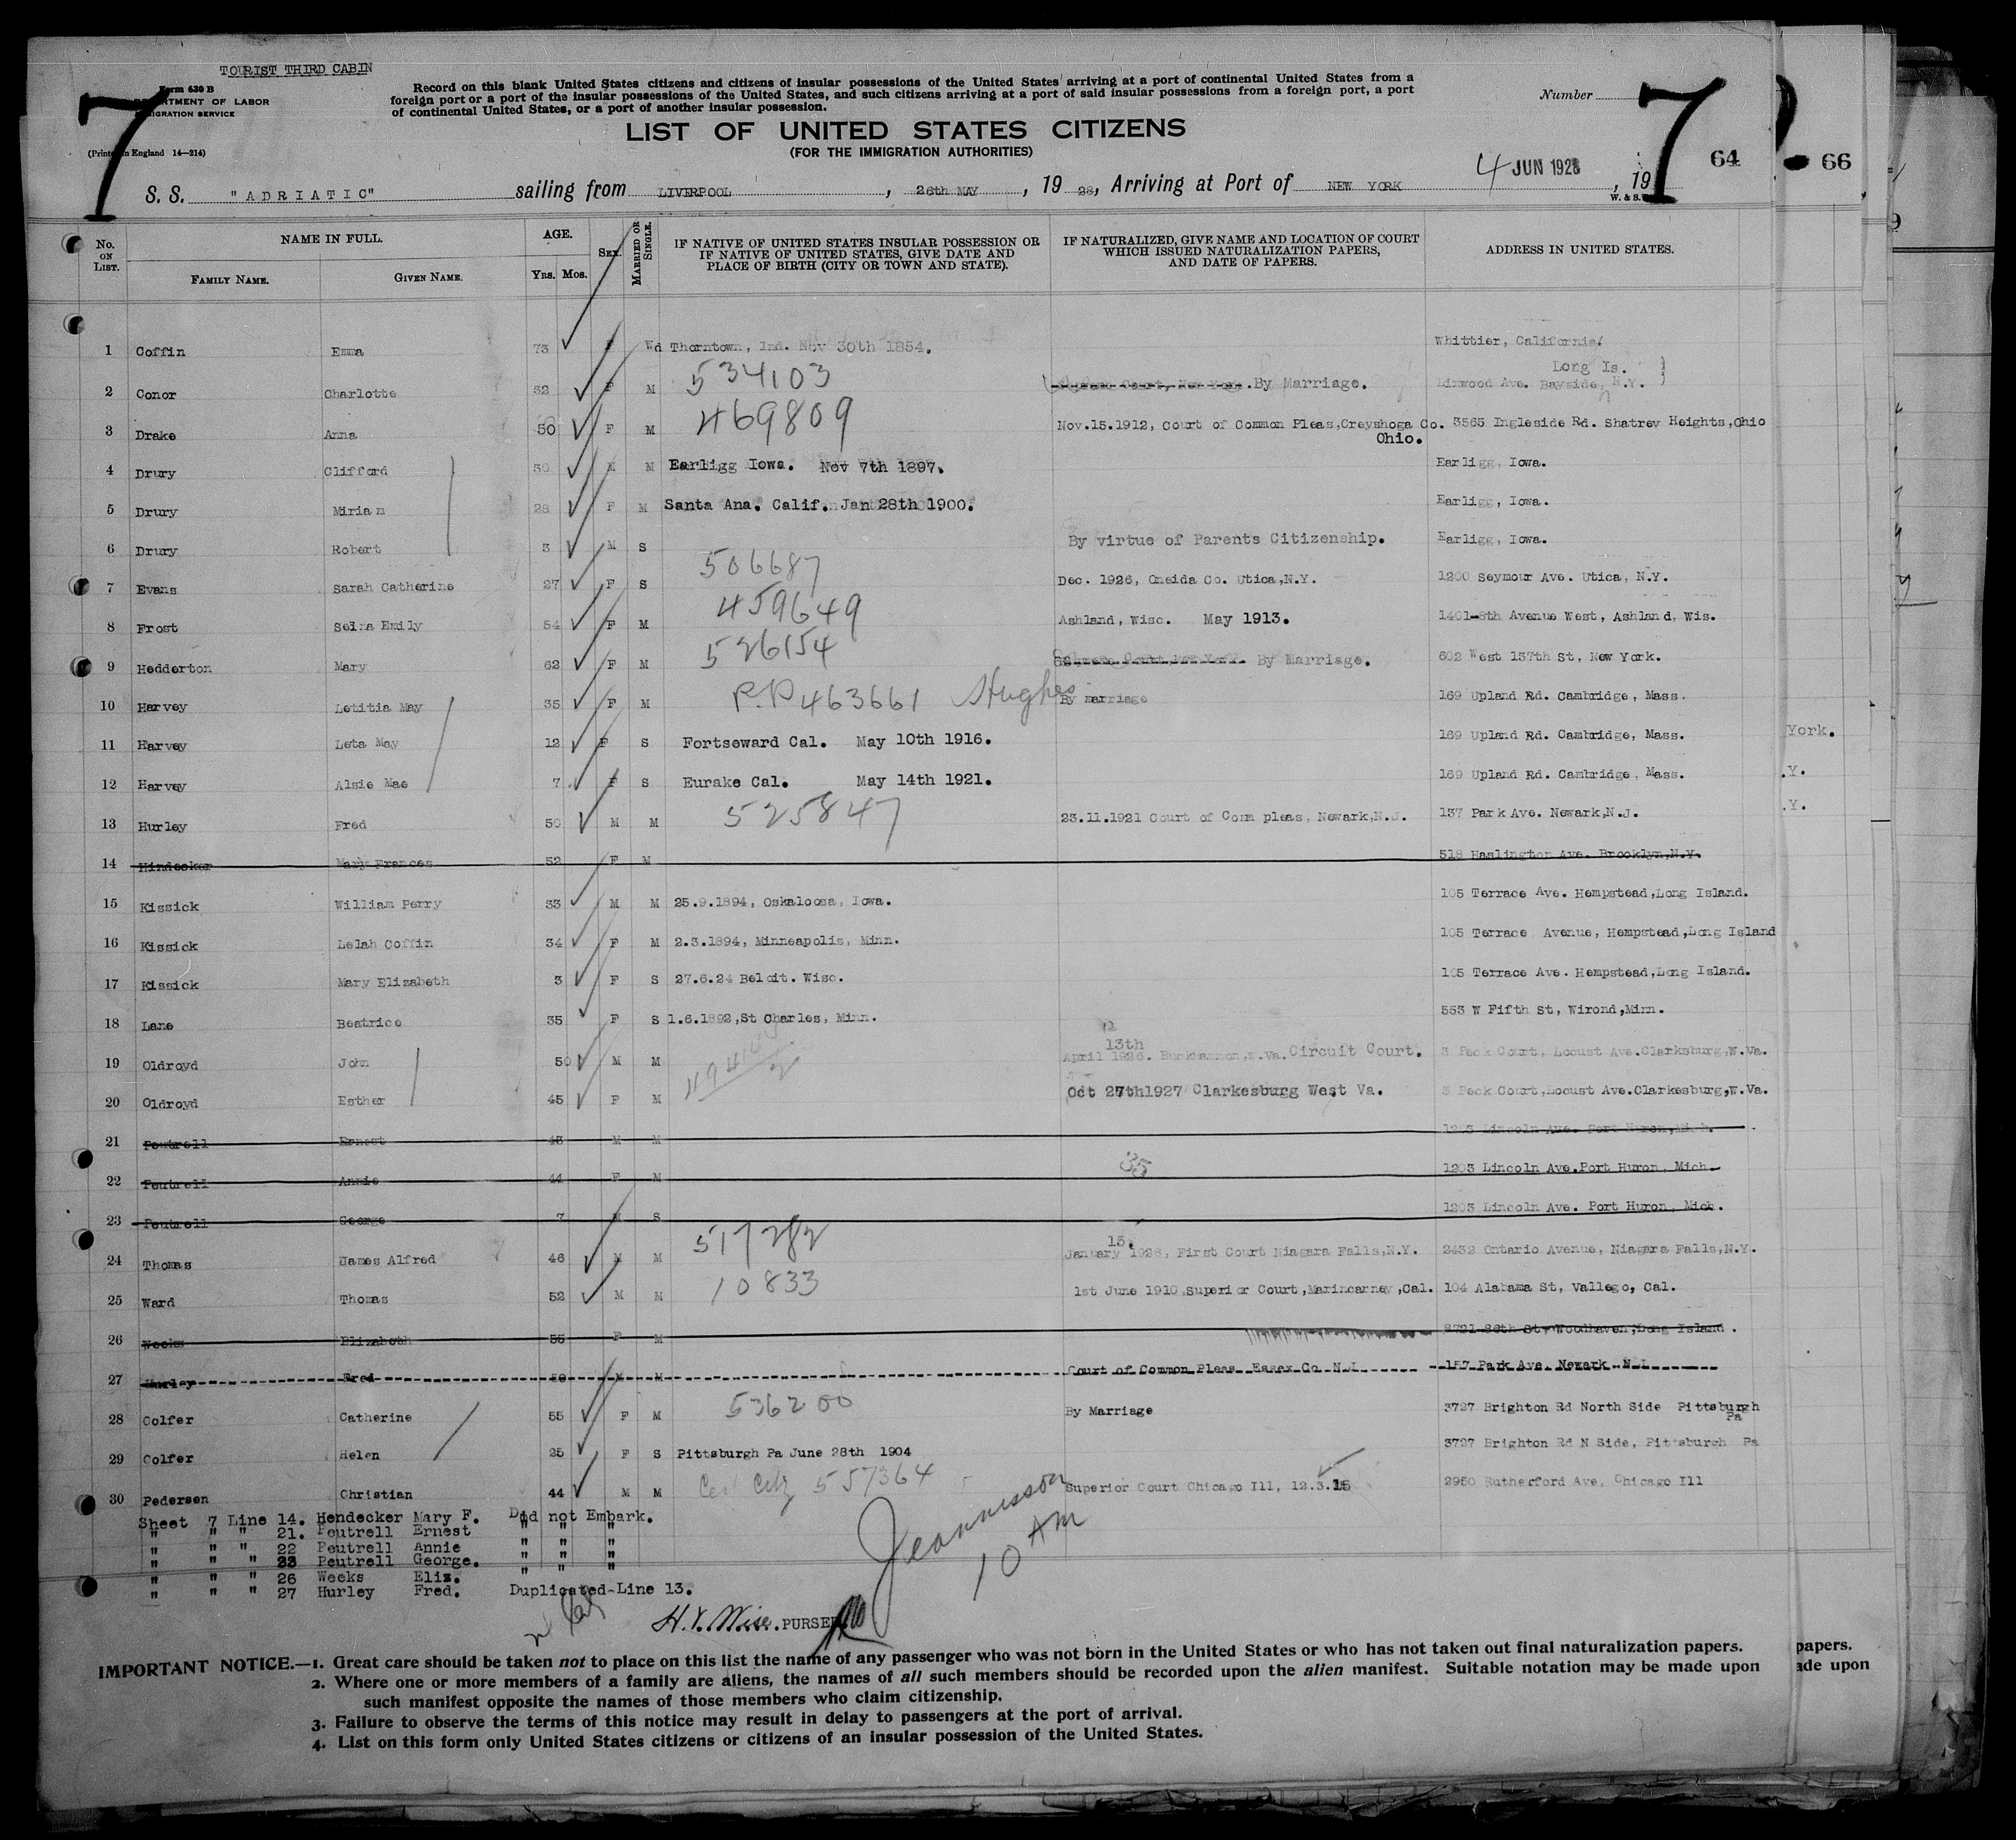 TOURIST THIRD CABIN
Form 630 B
DEPARTMENT OF LABOR
IMMIGRATION SERVICE
(Printed in England 14—214)
Record on this blank United States citizens and citizens of insular possessions of the United States arriving at a port of continental United States from a
foreign port or a port of the insular possessions of the United States, and such citizens arriving at a port of said insular possessions from a foreign port, a port
of continental United States, or a port of another insular possession.
Number
7 7
LIST OF UNITED STATES CITIZENS
(FOR THE IMMIGRATION AUTHORITIES)
64 66
S. S. "ADRIATIC" sailing from LIVERPOOL, 26th MAY, 19 28, Arriving at Port of NEW YORK 4 JUN 1928, 19
W. & S.
No. ON LIST. NAME IN FULL. FAMILY NAME. GIVEN NAME. AGE. Yrs. Mos. SEX. MARRIED OR SINGLE. IF NATIVE OF UNITED STATES INSULAR POSSESSION OR IF NATIVE OF UNITED STATES, GIVE DATE AND PLACE OF BIRTH (CITY OR TOWN AND STATE). IF NATURALIZED, GIVE NAME AND LOCATION OF COURT WHICH ISSUED NATURALIZATION PAPERS, AND DATE OF PAPERS. ADDRESS IN UNITED STATES.
1 Coffin Emma 73 F Wd Thorntown, Ind. Nov 30th 1854. Whittier, California.
2 Conor Charlotte 52 F M 534103 Supreme Court, New York. By Marriage. Linwood Ave. Bayside, N.Y. Long Is.
3 Drake Anna 50 F M 469809 Nov.15.1912, Court of Common Pleas, Creyshoga Co. Ohio. 3565 Ingleside Rd. Shatrev Heights, Ohio
4 Drury Clifford 30 M M Earligg Iowa. Nov 7th 1897. Earligg, Iowa.
5 Drury Miriam 28 F M Santa Ana. Calif. Jan 28th 1900. Earligg, Iowa.
6 Drury Robert 3 M S By virtue of Parents Citizenship. Earligg, Iowa.
7 Evans Sarah Catherine 27 F S 506687 Dec. 1926, Oneida Co. Utica, N.Y. 1200 Seymour Ave. Utica, N.Y.
8 Frost Seina Emily 54 F M 459649 Ashland, Wisc. May 1913. 1401-8th Avenue West, Ashland, Wis.
9 Hedderton Mary 62 F M 526154 Supreme Court New York. By Marriage. 602 West 137th St, New York.
10 Harvey Letitia May 35 F M P.P 463661 Hughes By marriage 169 Upland Rd. Cambridge, Mass.
11 Harvey Leta May 12 F S Fortseward Cal. May 10th 1916. 169 Upland Rd. Cambridge, Mass. York.
12 Harvey Alsie Mae 7 F S Eurake Cal. May 14th 1921. 169 Upland Rd. Cambridge, Mass. .Y.
13 Hurley Fred 50 M M 525847 23.11.1921 Court of Comm pleas, Newark, N.J. 137 Park Ave. Newark, N.J. .Y.
14 Hindecker Mary Frances 52 F M 518 Haslington Ave. Brooklyn, N.Y.
15 Kissick William Perry 33 M M 25.9.1894, Oskaloosa, Iowa. 105 Terrace Ave. Hempstead, Long Island.
16 Kissick Lelah Coffin 34 F M 2.3.1894, Minneapolis, Minn. 105 Terrace Avenue, Hempstead, Long Island
17 Kissick Mary Elizabeth 3 F S 27.6.24 Beloit. Wisc. 105 Terrace Ave. Hempstead, Long Island.
18 Lane Beatrice 35 F S 1.6.1892, St Charles, Minn. 553 W Fifth St, Wirond, Minn.
19 Oldroyd John 50 M M 12 13th April 1926. Buckhannon, W.Va. Circuit Court. 3 Peck Court, Locust Ave. Clarksburg, W.Va.
20 Oldroyd Esther 45 F M Oct 27th 1927 Clarkesburg West Va. 3 Peck Court, Locust Ave. Clarkesburg, W.Va.
21 Peutrell Ernest 43 M M 1203 Lincoln Ave. Port Huron, Mich.
22 Peutrell Annie 44 F M 35 1203 Lincoln Ave. Port Huron, Mich.
23 Peutrell George 7 M S 1203 Lincoln Ave. Port Huron, Mich.
24 Thomas James Alfred 46 M M 517282 January 13. 1928, First Court Niagara Falls, N.Y. 2432 Ontario Avenue, Niagara Falls, N.Y.
25 Ward Thomas 52 M M 10833 1st June 1910, Superior Court, Marincarney, Cal. 104 Alabama St, Vallego, Cal.
26 Weeks Elizabeth 55 F M 8721 86th St, Woodhaven, Long Island.
27 Hurley Fred 50 M M Court of Common Pleas Essex Co N.J 157 Park Ave. Newark N.J.
28 Colfer Catherine 55 F M 536200 By Marriage 3727 Brighton Rd North Side Pittsburgh Pa
29 Colfer Helen 25 F S Pittsburgh Pa June 28th 1904 3727 Brighton Rd N Side, Pittsburgh Pa
30 Pedersen Christian 44 M M 557364 Superior Court Chicago Ill, 12.3.15 2950 Rutherford Ave, Chicago Ill
Sheet 7 Line 14. Hendecker Mary F. Did not Embark.
" " " 21. Peutrell Ernest " " "
" " " 22 Peutrell Annie " " "
" " " 23 Peutrell George. " " "
" " " 26 Weeks Eliz. " " "
" " " 27 Hurley Fred. Duplicated-Line 13.
10 AM
H.V. Wise. PURSER
IMPORTANT NOTICE.—1. Great care should be taken not to place on this list the name of any passenger who was not born in the United States or who has not taken out final naturalization papers. papers.
2. Where one or more members of a family are aliens, the names of all such members should be recorded upon the alien manifest. Suitable notation may be made upon ade upon
such manifest opposite the names of those members who claim citizenship.
3. Failure to observe the terms of this notice may result in delay to passengers at the port of arrival.
4. List on this form only United States citizens or citizens of an insular possession of the United States.